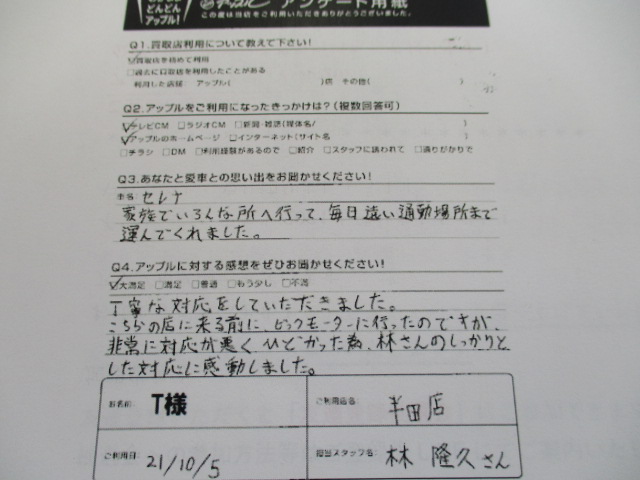 どんどん
アップル!
アップル アンケート用紙
この度は当店をご利用いただきありがとうございました。
Q1.買取店利用について教えて下さい!
☑買取店を初めて利用
□過去に買取店を利用したことがある
利用した店舗: アップル( )店 その他( )
Q2.アップルをご利用になったきっかけは?(複数回答可)
☑テレビCM □ラジオCM □新聞・雑誌(媒体名/ )
☑アップルのホームページ □インターネット(サイト名 )
□チラシ □DM □利用経験があるので □紹介 □スタッフに誘われて □通りがかりで
Q3.あなたと愛車との思い出をお聞かせください!
車名 セレナ
家族でいろんな所へ行って、毎日遠い通勤場所まで
運んでくれました。
Q4.アップルに対する感想をぜひお聞かせください!
☑大満足 □満足 □普通 □もう少し □不満
丁寧な対応をしていただきました。
こちらの店に来る前に、ビックモーターに行ったのですが、
非常に対応が悪くひどかった為、林さんのしっかりと
した対応に感動しました。
お名前 T様 ご利用店名 半田店
ご利用日 21/10/5 担当スタッフ名 林 隆久さん